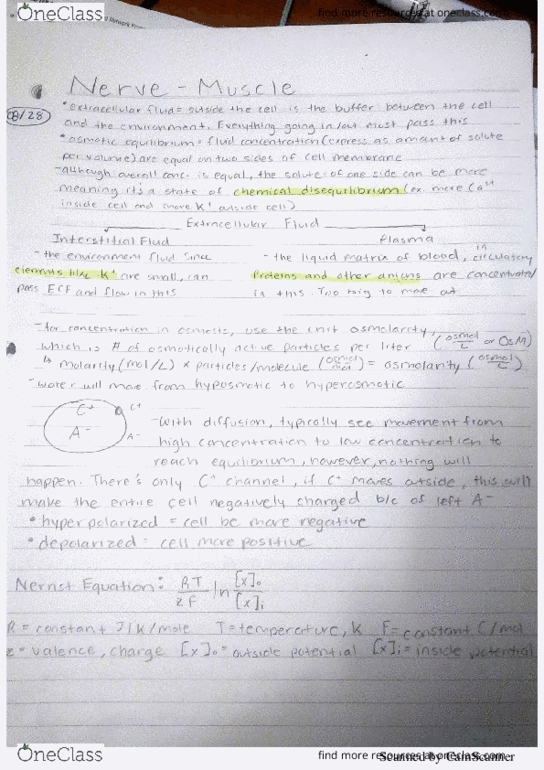 OneClass
find more resources at oneclass.com
Nerve - Muscle
8/28
• extracellular fluid = outside the cell is the buffer between the cell
and the environment. Everything going in/out must pass this
• osmotic equilibrium = fluid concentration (express as amount of solute
per volume) are equal on two sides of cell membrane
- although overall conc. is equal, the solute of one side can be more
meaning its a state of chemical disequilibrium (ex. more Ca
inside cell and more K+ outside cell)
Extracellular Fluid
Interstitial Fluid
Plasma
- the environment fluid since
elements like K+ are small, can
pass ECF and flow in this
- the liquid matrix of blood, in circulatory
Proteins and other anions are concentrated
in this. Too big to move out
- for concentration in osmosis, use the unit osmolarity,
which is # of osmotically active particles per liter (osmol/L or OsM)
↳ molarity (mol/L) × particles/molecule (osmol/mol) = osmolarity (osmol/L)
- water will move from hyposmotic to hyperosmotic
C+
C+
A-
A-
- With diffusion, typically see movement from
high concentration to low concentration to
reach equilibrium, however, nothing will
happen. There's only C+ channel, if C+ moves outside, this will
make the entire cell negatively charged b/c of left A-
• hyperpolarized = cell be more negative
• depolarized = cell more positive
Nernst Equation: RT/zF ln [x]o/[x]i
R = constant J/K/mole T = temperature, K F = constant C/mol
z = valence, charge [x]o = outside potential [x]i = inside potential
OneClass
find more resources at oneclass.com
Scanned by CamScanner